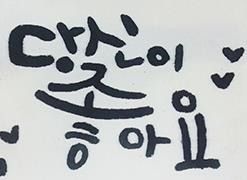 당신이
좋아요